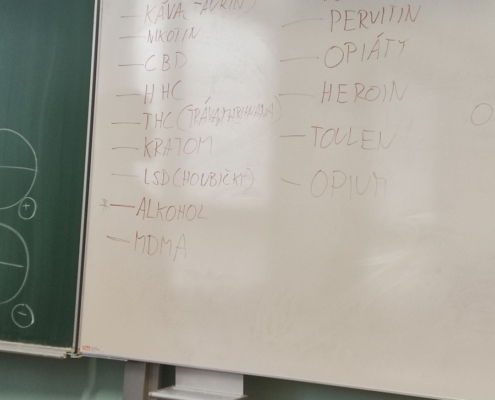 — KÁVA
— NIKOTIN
— CBD
— HHC
— THC (TRÁVA,
— KRATOM
— LSD (HOUBIČKY)
* — ALKOHOL
— MDMA
— PERVITIN
— OPIÁTY
— HEROIN
— TOULEN
— OPIUM
+
-